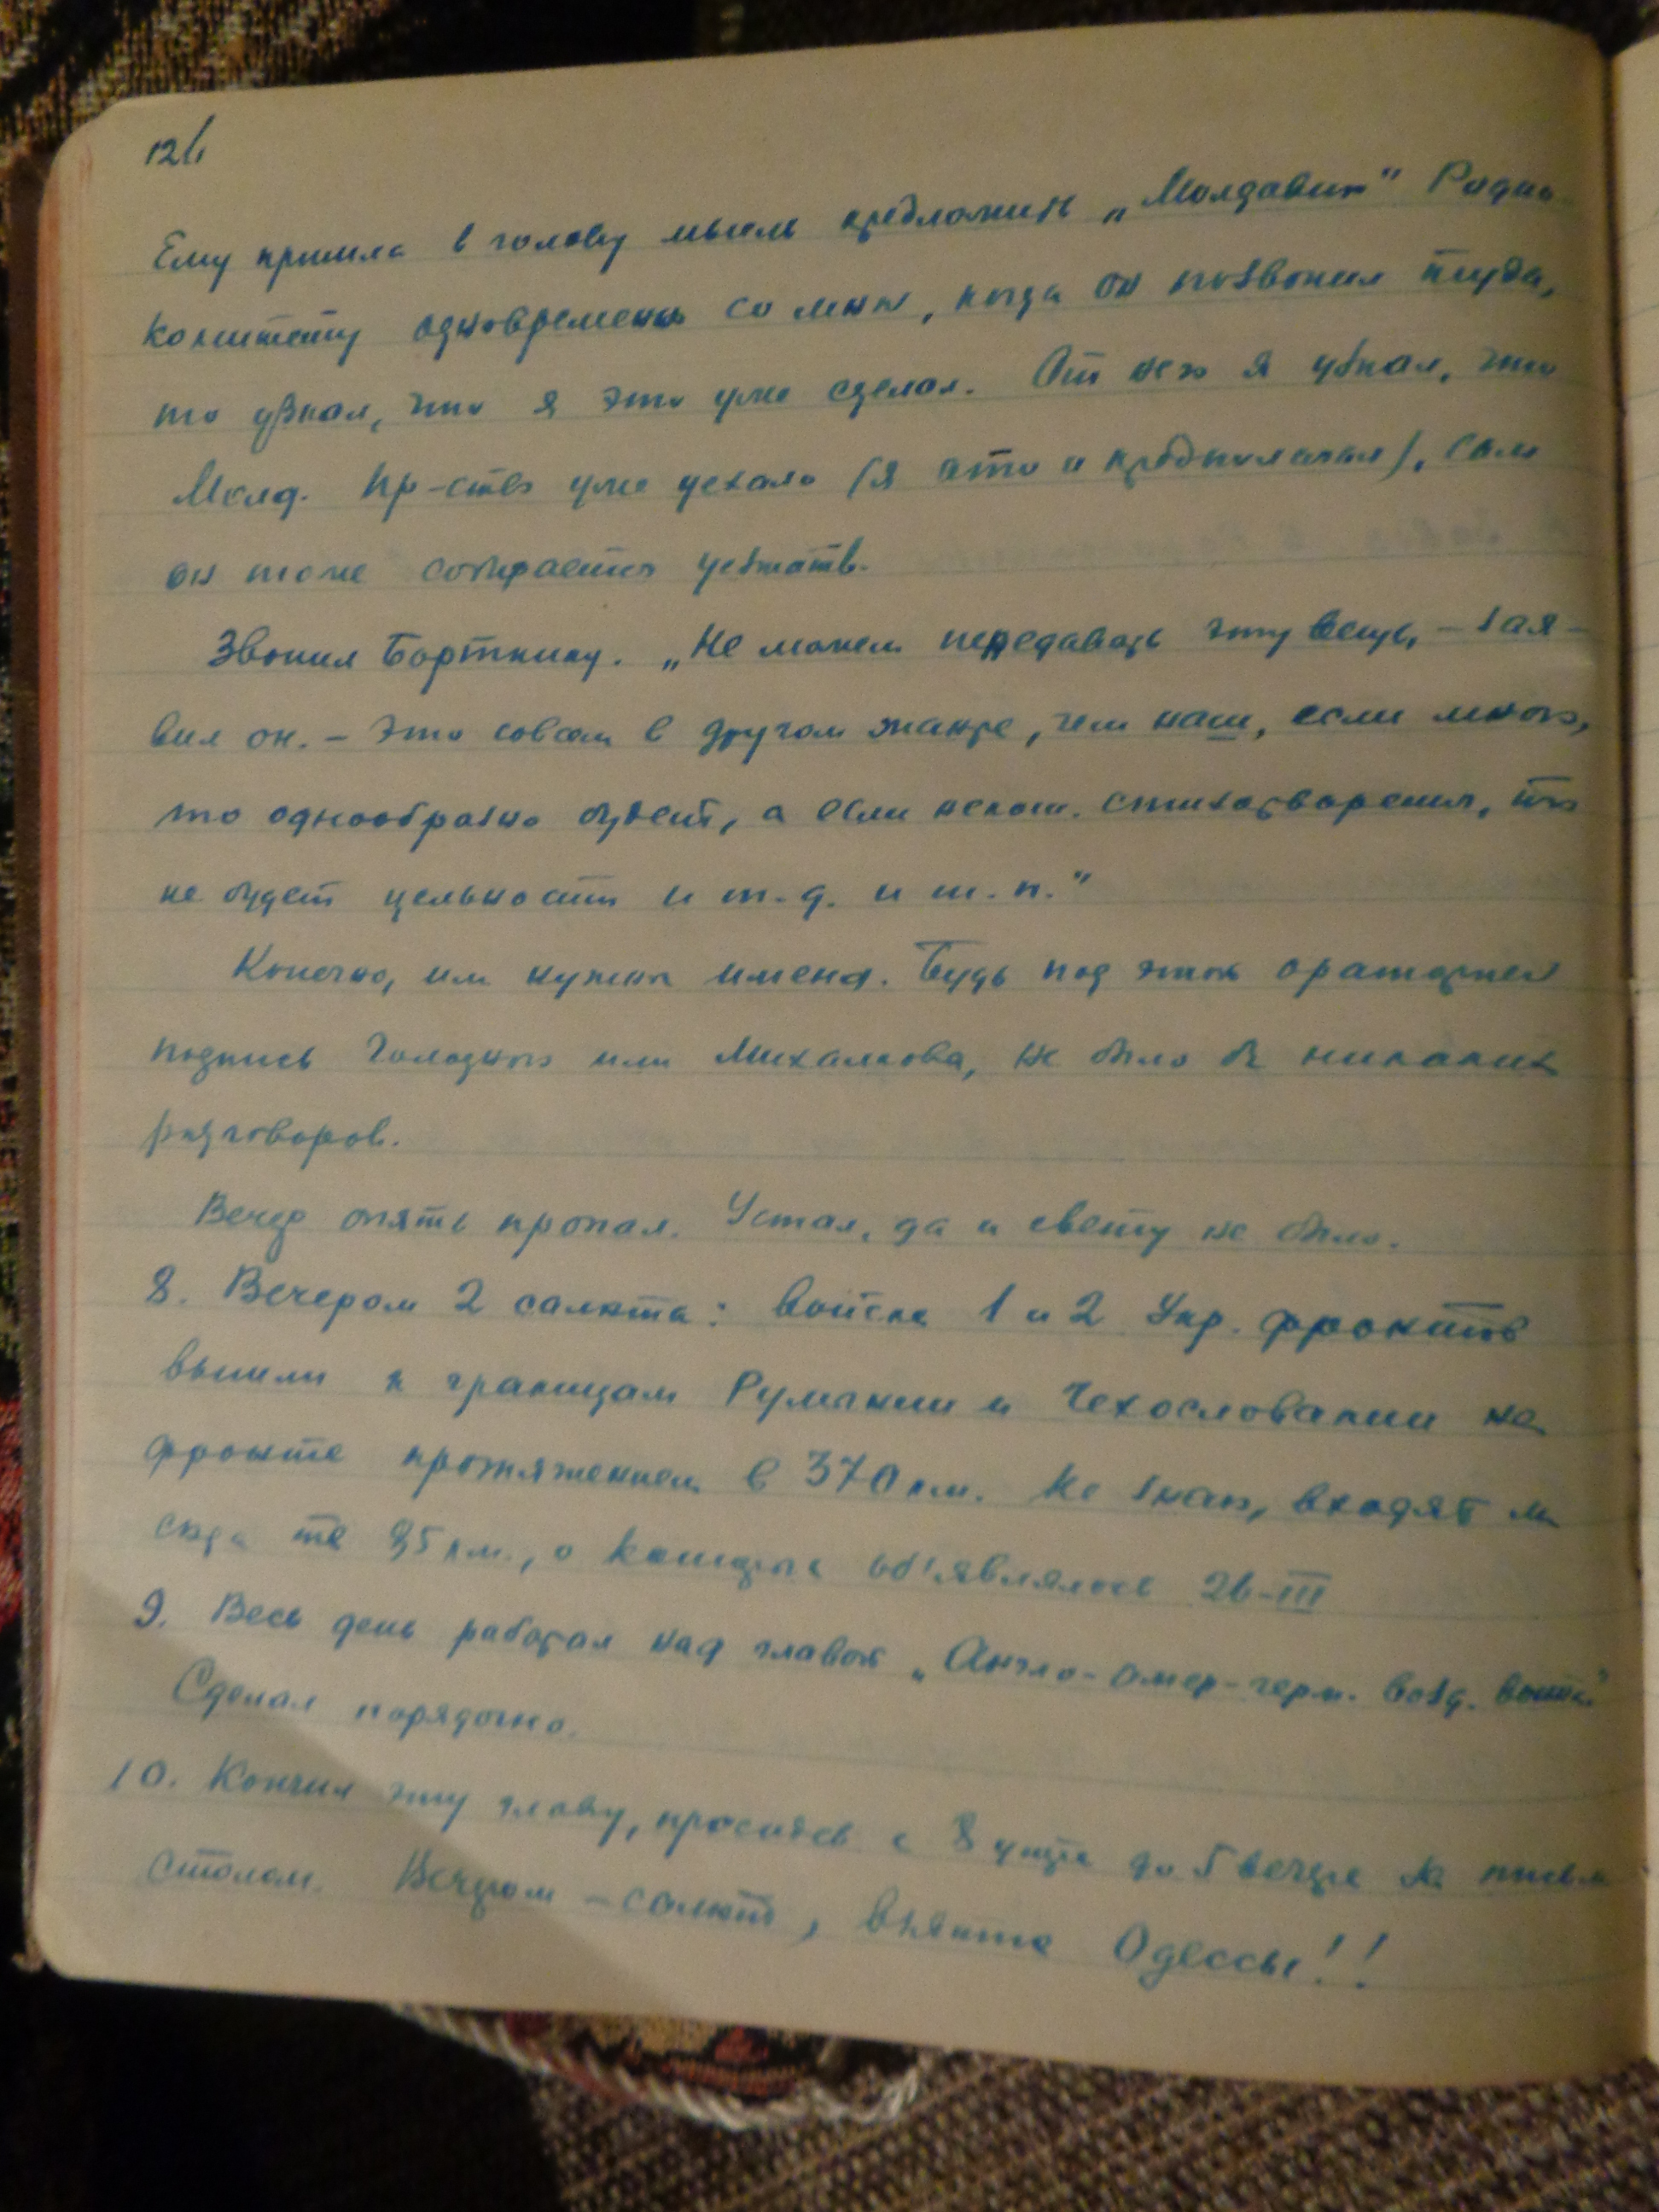 126
Ему пришла в голову мысль предложить „Молдавию" Радио-
комитету одновременно со мной, когда он позвонил туда,
то узнал, что я это уже сделал. От него я узнал, что
Молд. Пр-ство уже уехало (я это и предполагал), сам
он тоже собирается уезжать.
Звонил Бортнику. „Не можем передавать эту вещь, – зая-
вил он. – Это совсем в другом жанре, чем наш, если много,
то однообразно будет, а если некот. стихотворения, то
не будет цельности и т.д. и т.п."
Конечно, им нужны имена. Будь под этой ораторией
подпись Голодного или Михалкова, не было бы никаких
разговоров.
Вечер опять пропал. Устал, да и свету не было.
8. Вечером 2 салюта: войска 1 и 2 Укр. фронтов
вышли к границам Румынии и Чехословакии на
фронте протяжением в 370 км. Не знаю, входят ли
сюда те 85 км., о которых об'являлось 26-III
9. Весь день работал над главой „Англо-амер-герм. возд. война"
Сделал порядочно.
10. Кончил эту главу, просидев с 8 утра до 5 вечера за письм.
столом. Вечером – салют, взятие Одессы!!